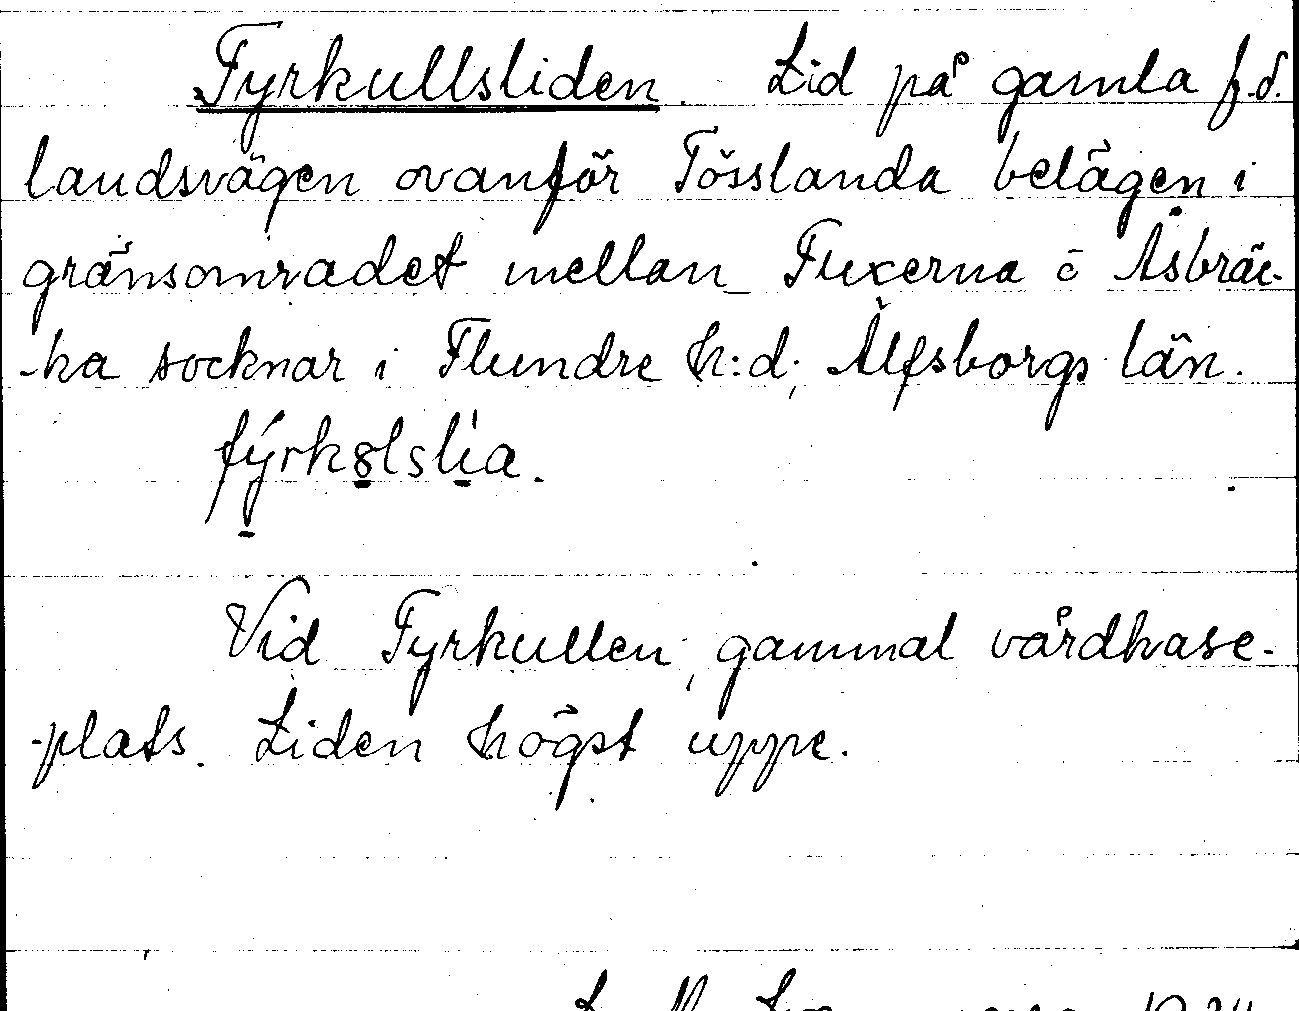 Fyrkullsliden. Lid på gamla f.d.
landsvägen ovanför Tösslanda belägen i
gränsområdet mellan Fuxerna o Åsbräc-
-ka socknar i Flundre h:d; Älfsborgs län.
fýrkolslía.
Vid Fyrkullen, gammal vårdkase-
-plats. Liden högst uppe.